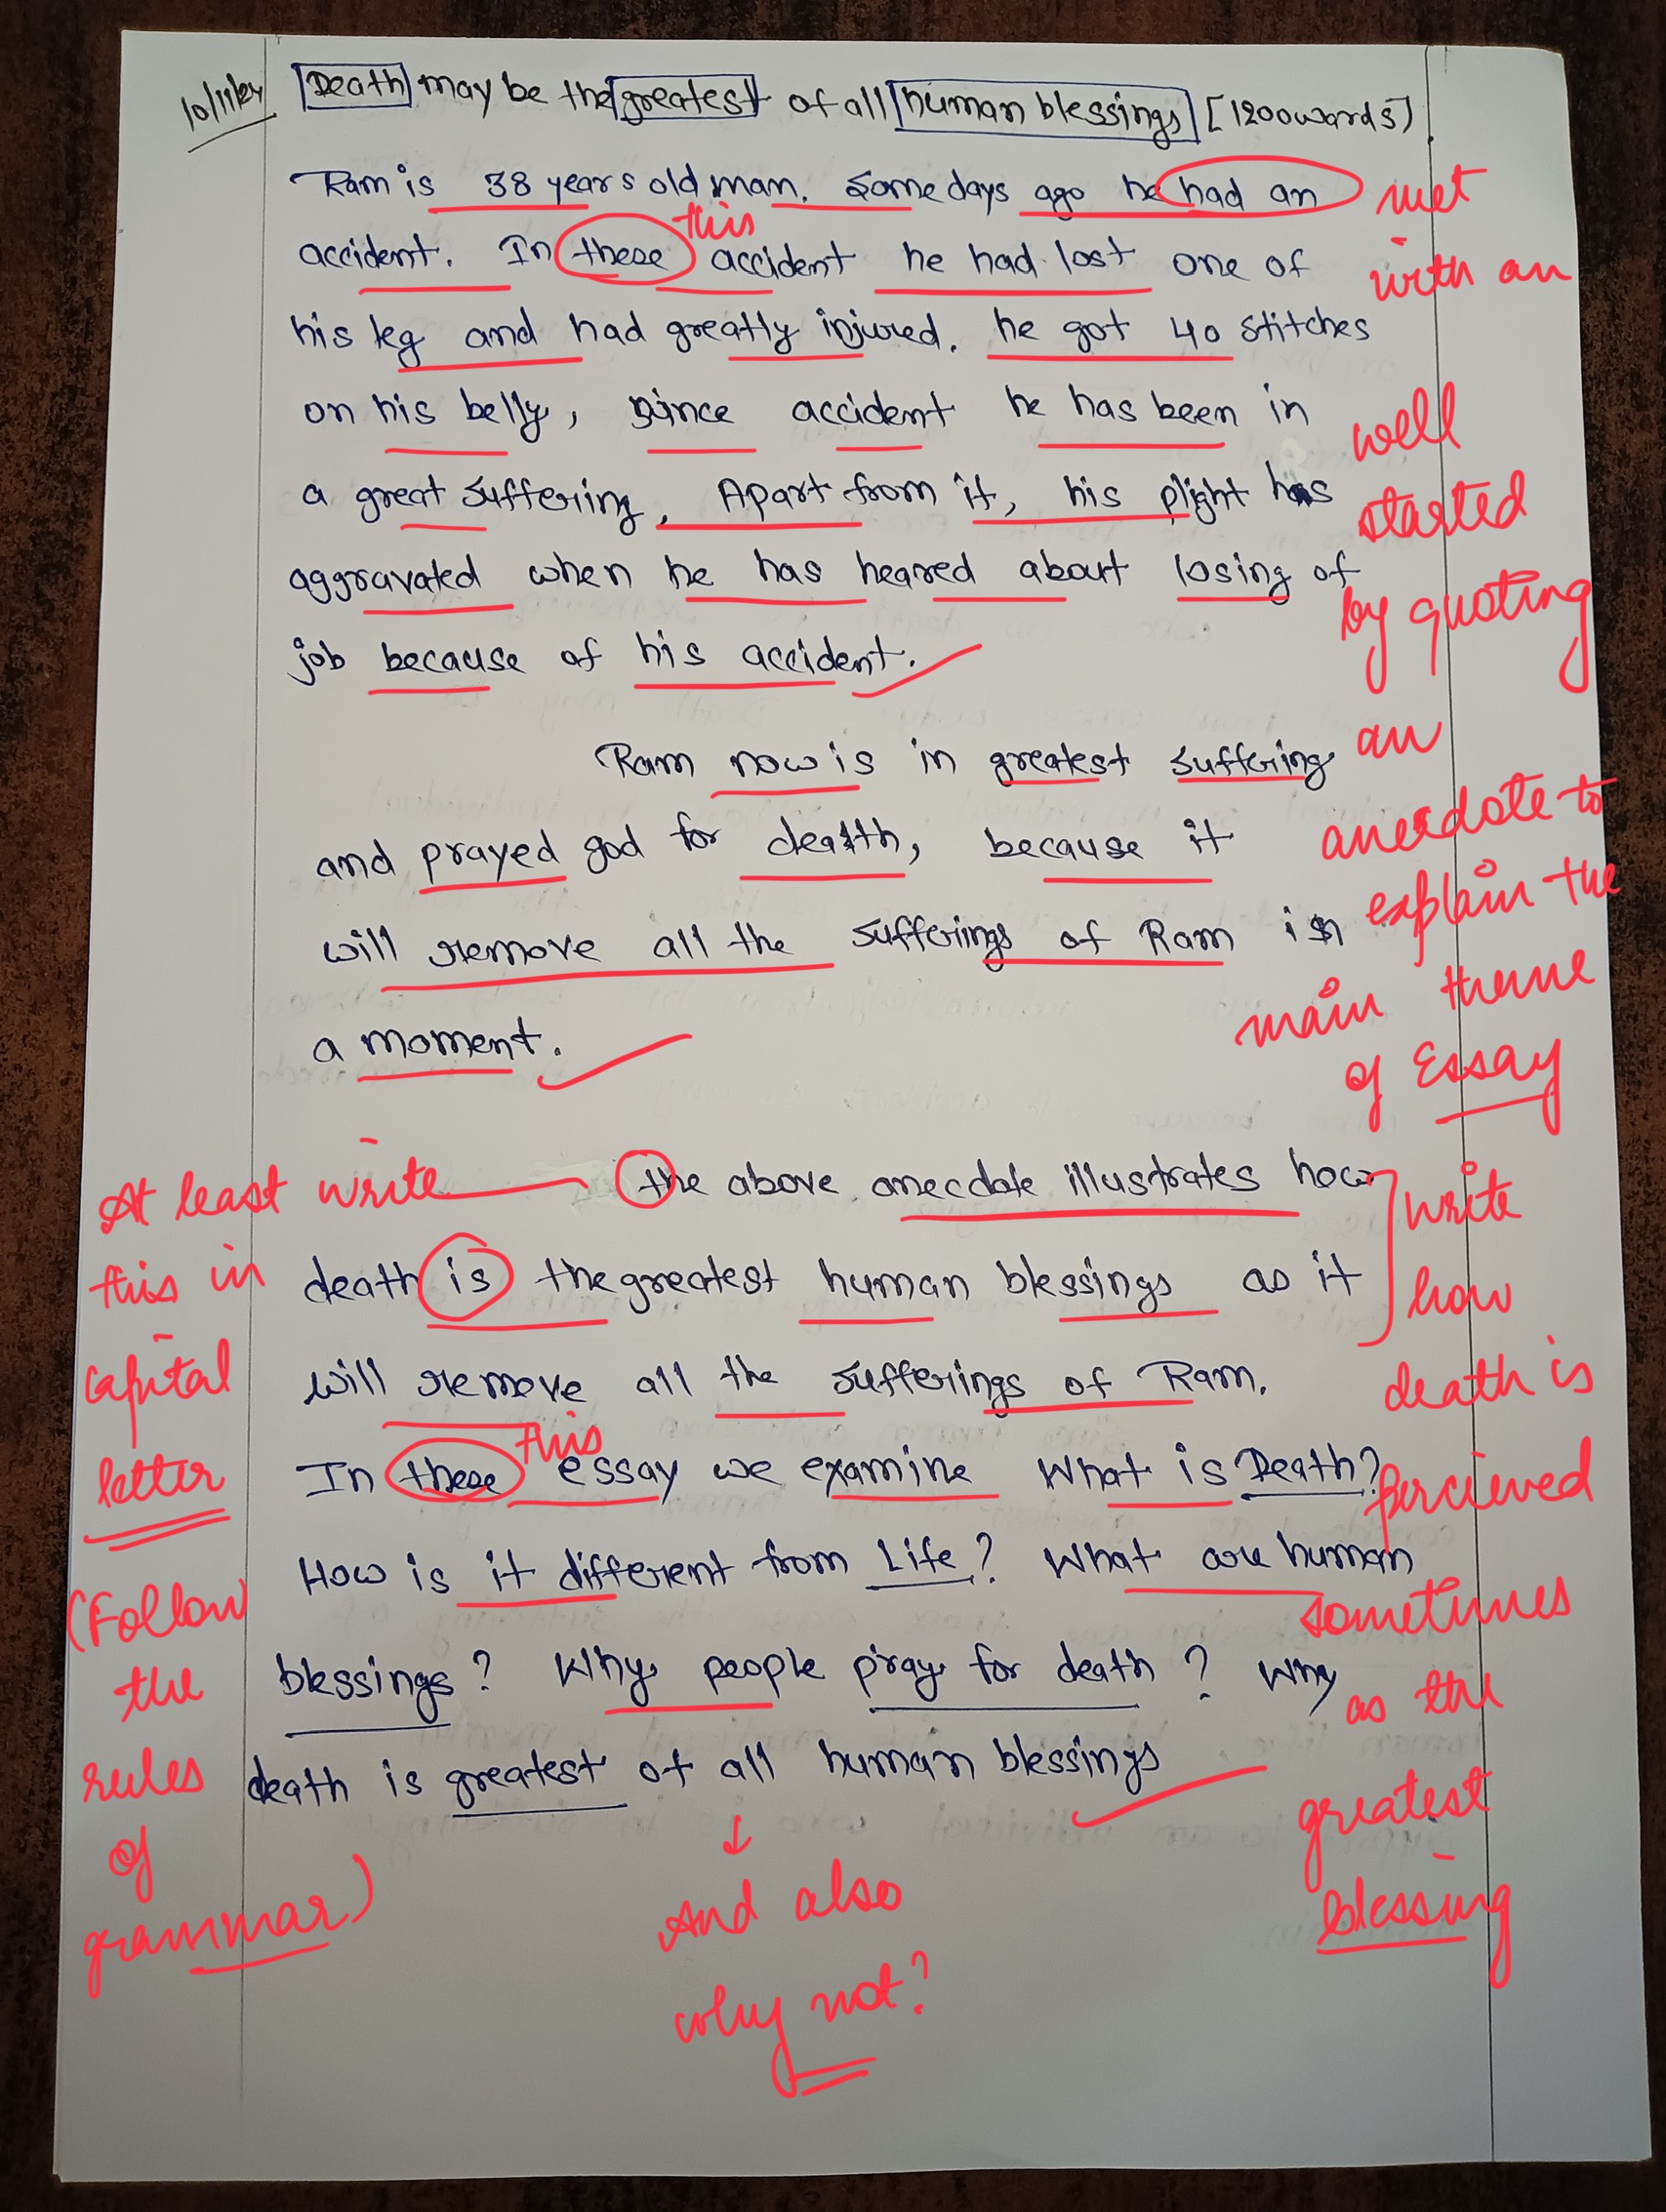 10/11/24 Death may be the greatest of all human blessings [1200 words]
Ram is 38 years old man. Some days ago he had an
met
accident. In these accident he had lost one of
this
with an
his leg and had greatly injured. he got 40 stitches
on his belly, since accident he has been in
well
a great suffering. Apart from it, his plight has
started
aggravated when he has heared about losing of
by quoting
job because of his accident.
Ram now is in greatest suffering
an
and prayed god for death, because it
anecdote to
will remove all the sufferings of Ram in
explain the
a moment.
main theme
of Essay
the above anecdote illustrates how
At least write
write
death is the greatest human blessings as it
this in
how
will remove all the sufferings of Ram.
capital
death is
In these essay we examine What is Death?
this
letter
percieved
How is it different from Life? What are human
(Follow
sometimes
blessings? Why people pray for death? Why
the
as the
death is greatest of all human blessings
rules
greatest
of
And also
blessing
grammar)
why not?